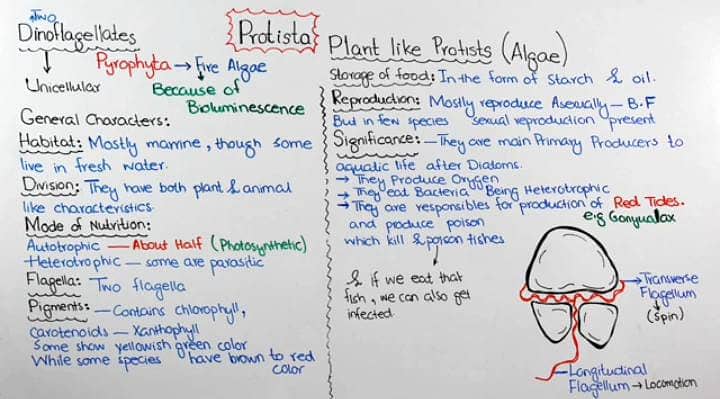 Two
Dinoflagellates
Protista
Plant like Protists (Algae)
Pyrophyta → Fire Algae
Unicellular
Because of
Bioluminescence
General Characters:
Habitat: Mostly marine, though some
live in fresh water.
Division: They have both plant & animal
like characteristics.
Mode of Nutrition:
Autotrophic — About Half (Photosynthetic)
Heterotrophic — some are parasitic
Flagella: Two flagella
Pigments: — Contains chlorophyll,
carotenoids — Xanthophyll
Some show yellowish green color
While some species have brown to red
color
Storage of food: In the form of starch & oil.
Reproduction: Mostly reproduce Asexually — B.F
But in few species sexual reproduction present
Significance: — They are main Primary Producers to
aquatic life after Diatoms.
→ They Produce Oxygen
→ They eat Bacteria Being Heterotrophic
→ They are responsibles for production of Red Tides.
e.g Gonyaulax
and produce poison
which kill & poison fishes
& if we eat that
fish, we can also get
infected.
→ Transverse
Flagellum
(Spin)
Longitudinal
Flagellum → Locomotion